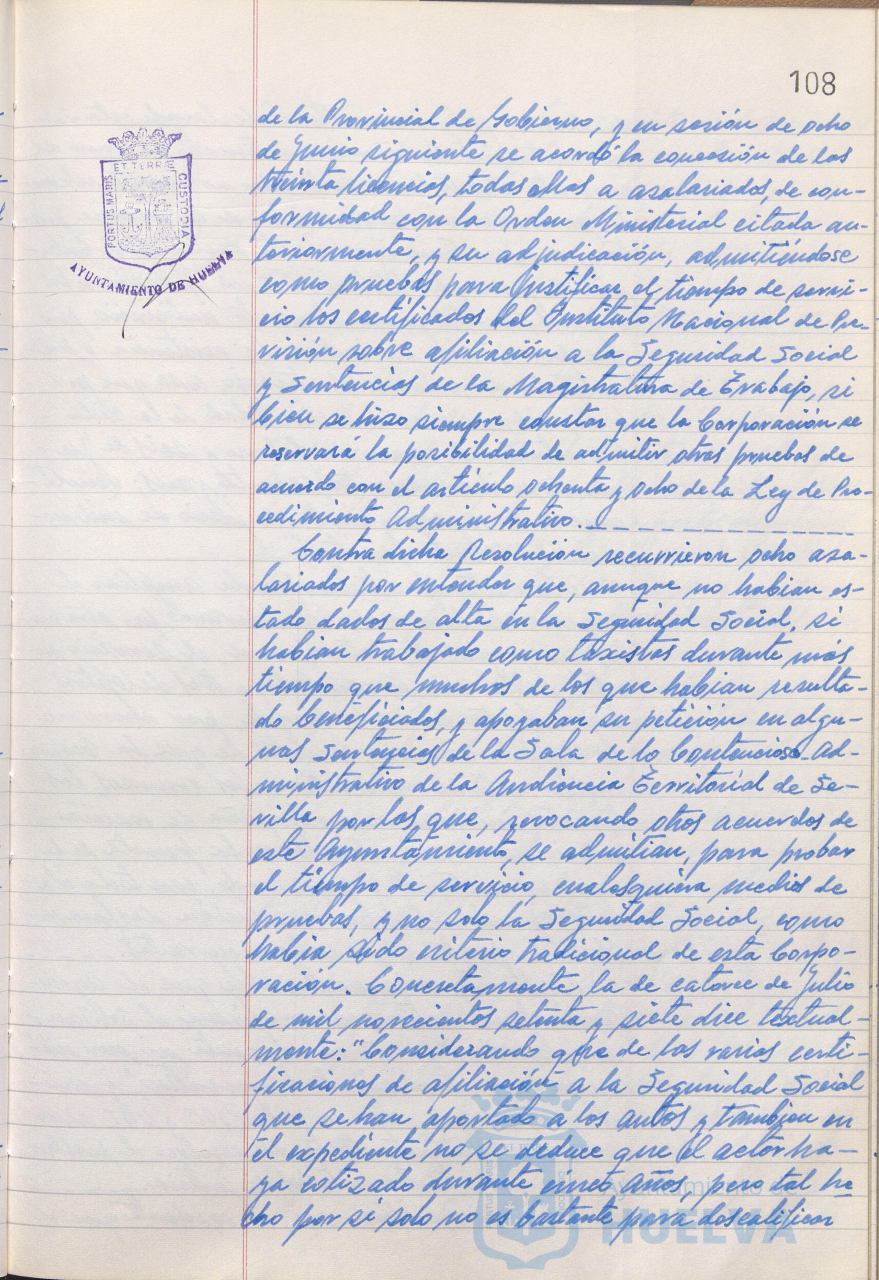 108
PORTUS MARIS ET TERRÆ CUSTODIA
AYUNTAMIENTO DE HUELVA
de la Provincial de Gobierno, y en sesión de ocho
de Junio siguiente se acordó la concesión de las
treinta licencias, todas ellas a asalariados, de con-
formidad con la Orden Ministerial citada an-
teriormente, y su adjudicación, admitiéndose
como pruebas para justificar el tiempo de servi-
cio los certificados del Instituto Nacional de Pre-
visión sobre afiliación a la Seguridad Social
y Sentencias de la Magistratura de Trabajo, si
bien se hizo siempre constar que la Corporación se
reservará la posibilidad de admitir otras pruebas de
acuerdo con el artículo ochenta y ocho de la Ley de Pro-
cedimiento Administrativo.
Contra dicha Resolución recurrieron ocho asa-
lariados por entender que, aunque no habian es-
tado dados de alta en la Seguridad Social, si
habian trabajado como taxistas durante más
tiempo que muchos de los que habian resulta-
do beneficiados, y apoyaban su petición en algu-
nas Sentencias de la Sala de lo Contencioso-Ad-
ministrativo de la Audiencia Territorial de Se-
villa por las que, revocando otros acuerdos de
este Ayuntamiento, se admitian, para probar
el tiempo de servicio, cualesquiera medios de
pruebas, y no solo la Seguridad Social, como
habia sido criterio tradicional de esta Corpo-
ración. Concretamente la de catorce de Julio
de mil novecientos setenta y siete dice textual-
mente: "Considerando que de las varias certi-
ficaciones de afiliación a la Seguridad Social
que se han aportado a los autos y tambien en
el expediente no se deduce que el actor ha-
ya cotizado durante cinco años, pero tal he-
cho por si solo no es bastante para descalificar
Ayuntamiento de
HUELVA